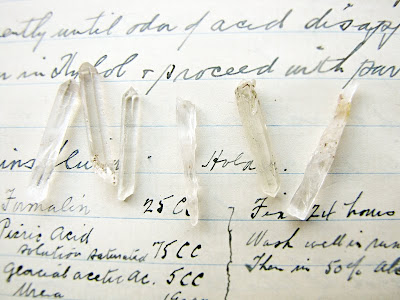 ently until odor of acid disapp
in Xylol & proceed with par
Formalin 25 C. Fix 24 hours
Picric Acid
solution saturated 75 CC Wash well in run
Glacial acetic Ac. 5CC Then in 50% alc
Urea